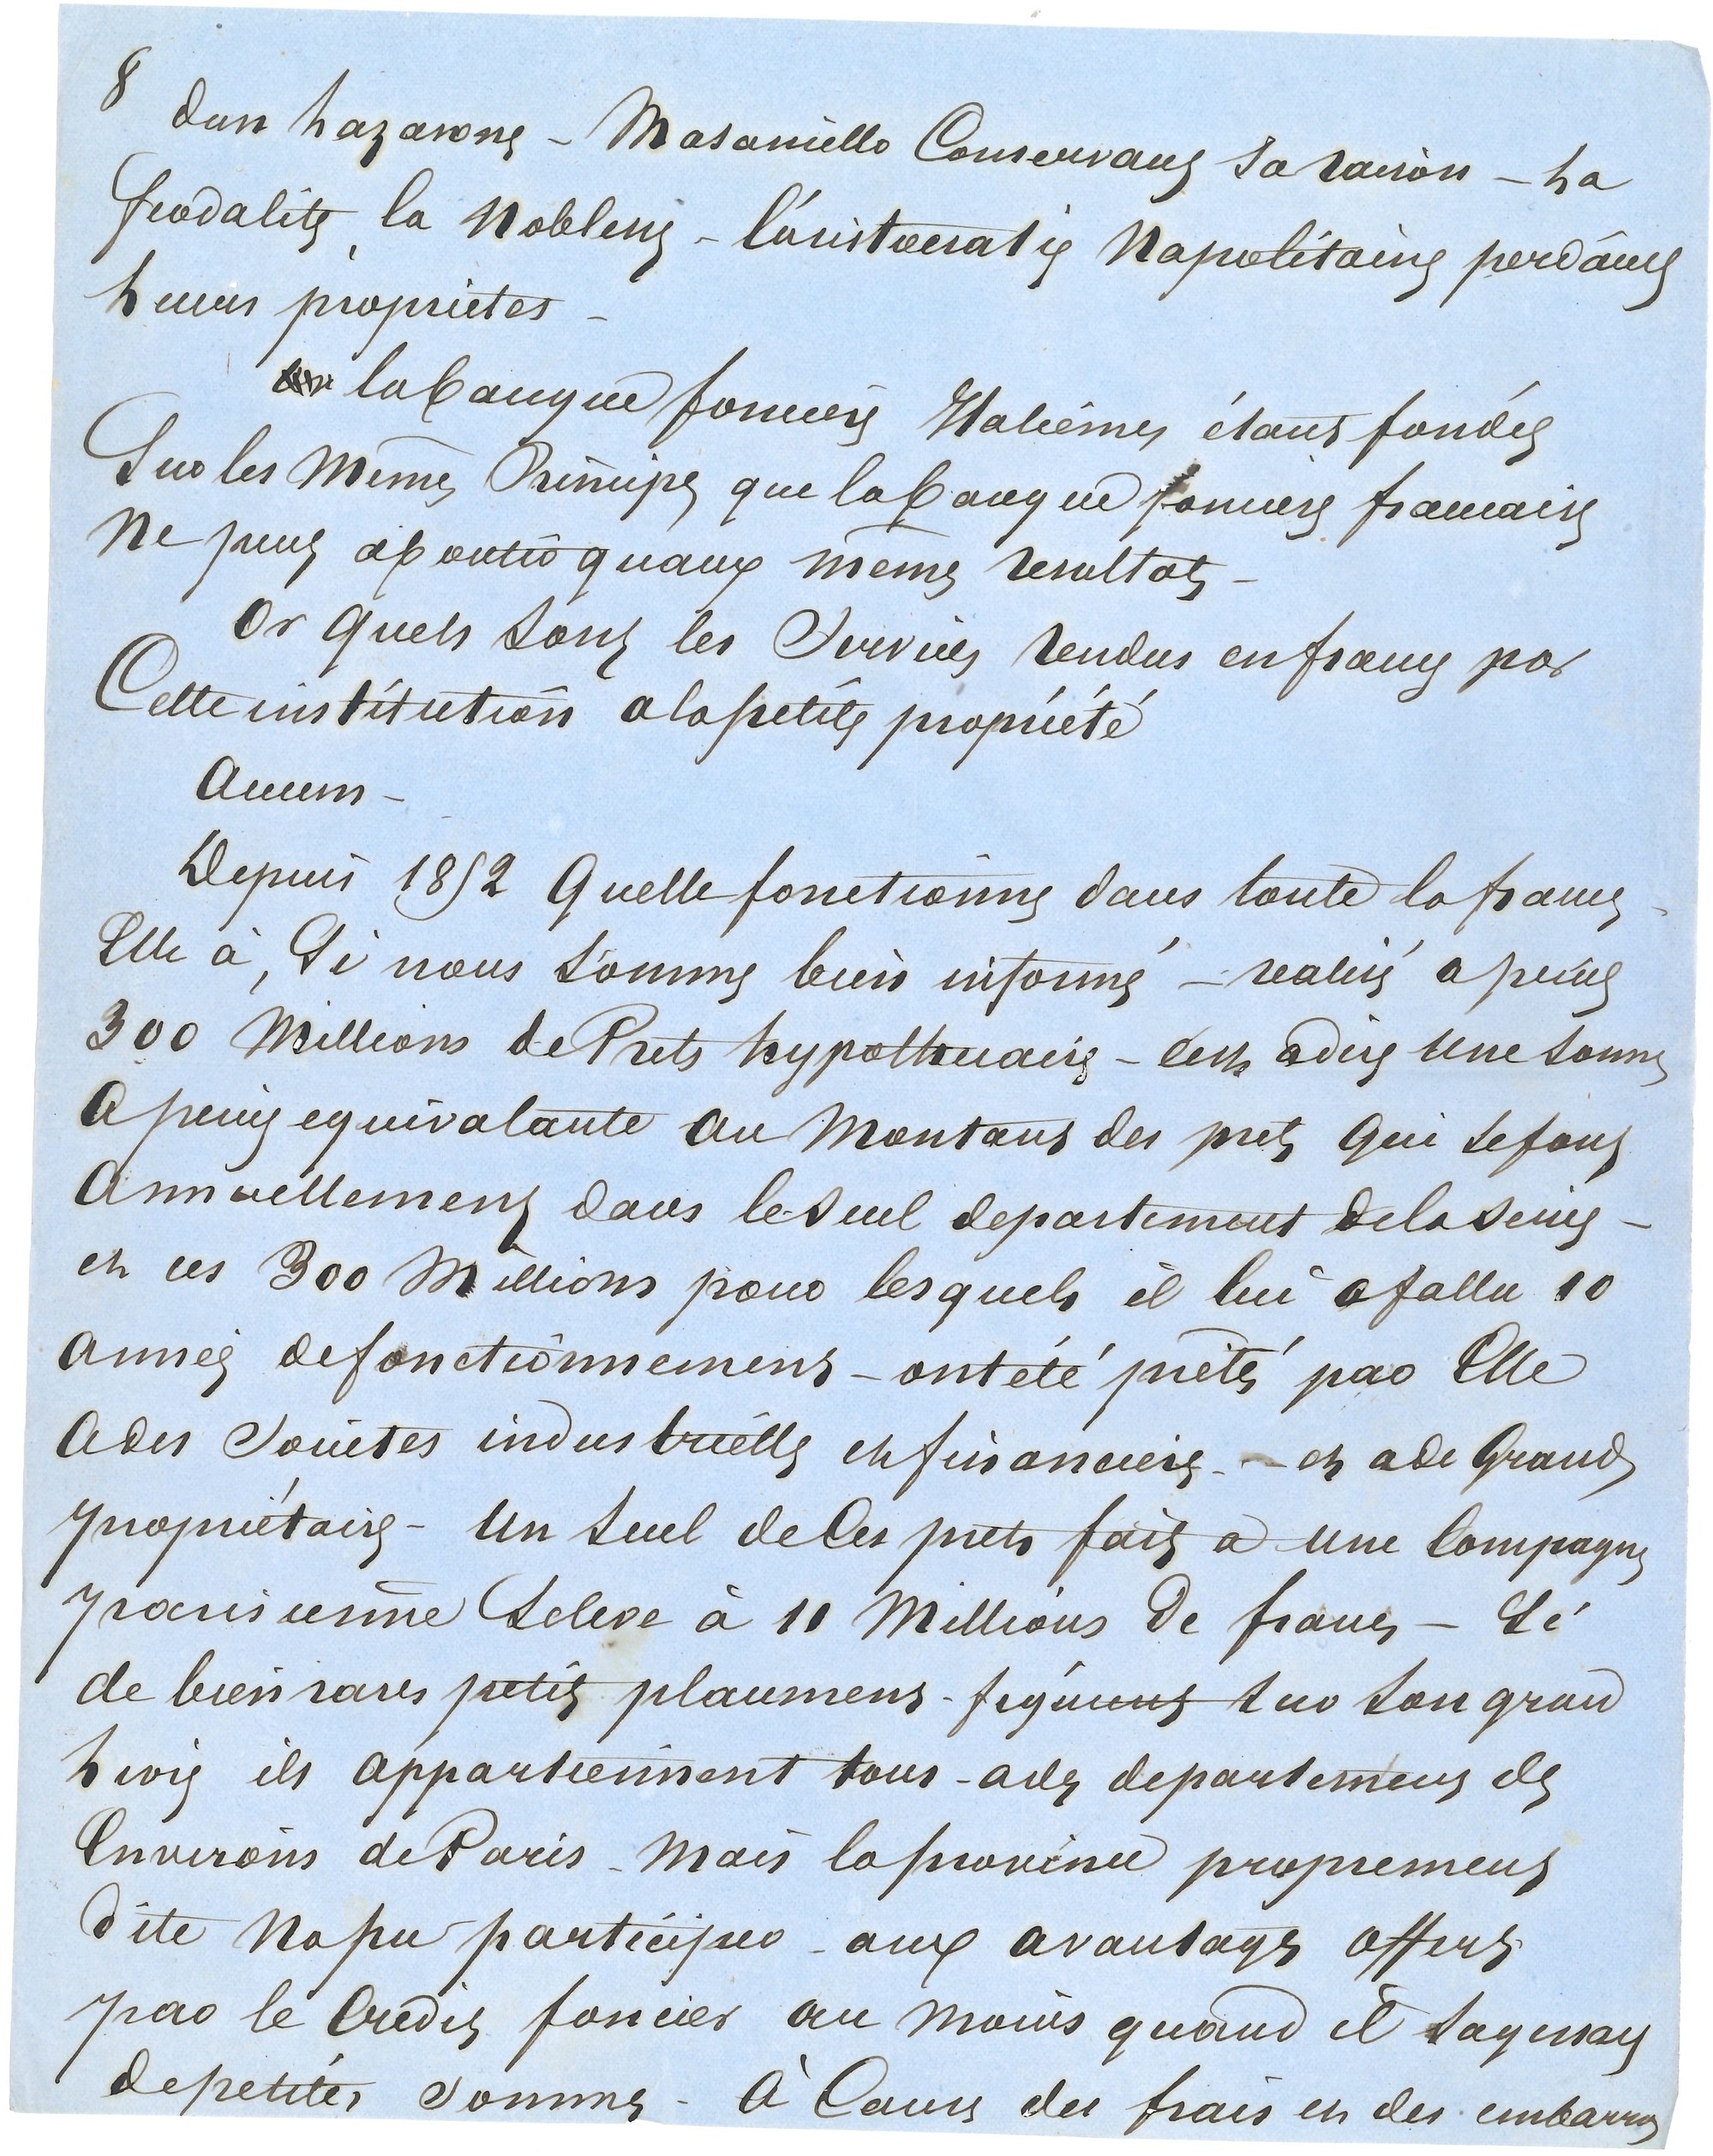 8
dun Lazarone - Masaniello Conservant sa raison - La
feodalité, la Noblesse - l'aristocratie Napolitaine perdant
Leurs proprietes -
la banque fonciere Italienne étant fondée
Sur les Meme Principe que la banque fonciere francaise
Ne peut aboutir quaux meme resultats -
Or quels sont les Services rendus en france par
Cette institution a la petite propriété
Aucuns -
Depuis 1852 quelle fonctionne dans toute la france -
Elle à, Si nous somme bien informé - realisé a peine
300 Millions de Prets hypothecaire - cest a dire Une somme
A peine equivalante au Montant des prets qui se font
Annuellement dans le seul departement de la seine -
et ces 300 Millions pour lesquels il lui a fallu 10
années de fonctionnement - ont été prêtés par Elle
A des Societes industrielles et financiere - et a de Grands
propriétaire - Un seul de Ces prets fait a une Compagnie
parisienne Seleve à 10 Millions De francs - Si
de bien rares petits placements - figurent sur son grand
Livre ils appartiennent tous - a des departements des
Environs de Paris - Mais la province proprement
dite Na pu participer - aux avantages offerts
par le Credit foncier au moins quand il sagissait
de petites Sommes - À Cause des frais et des embarras